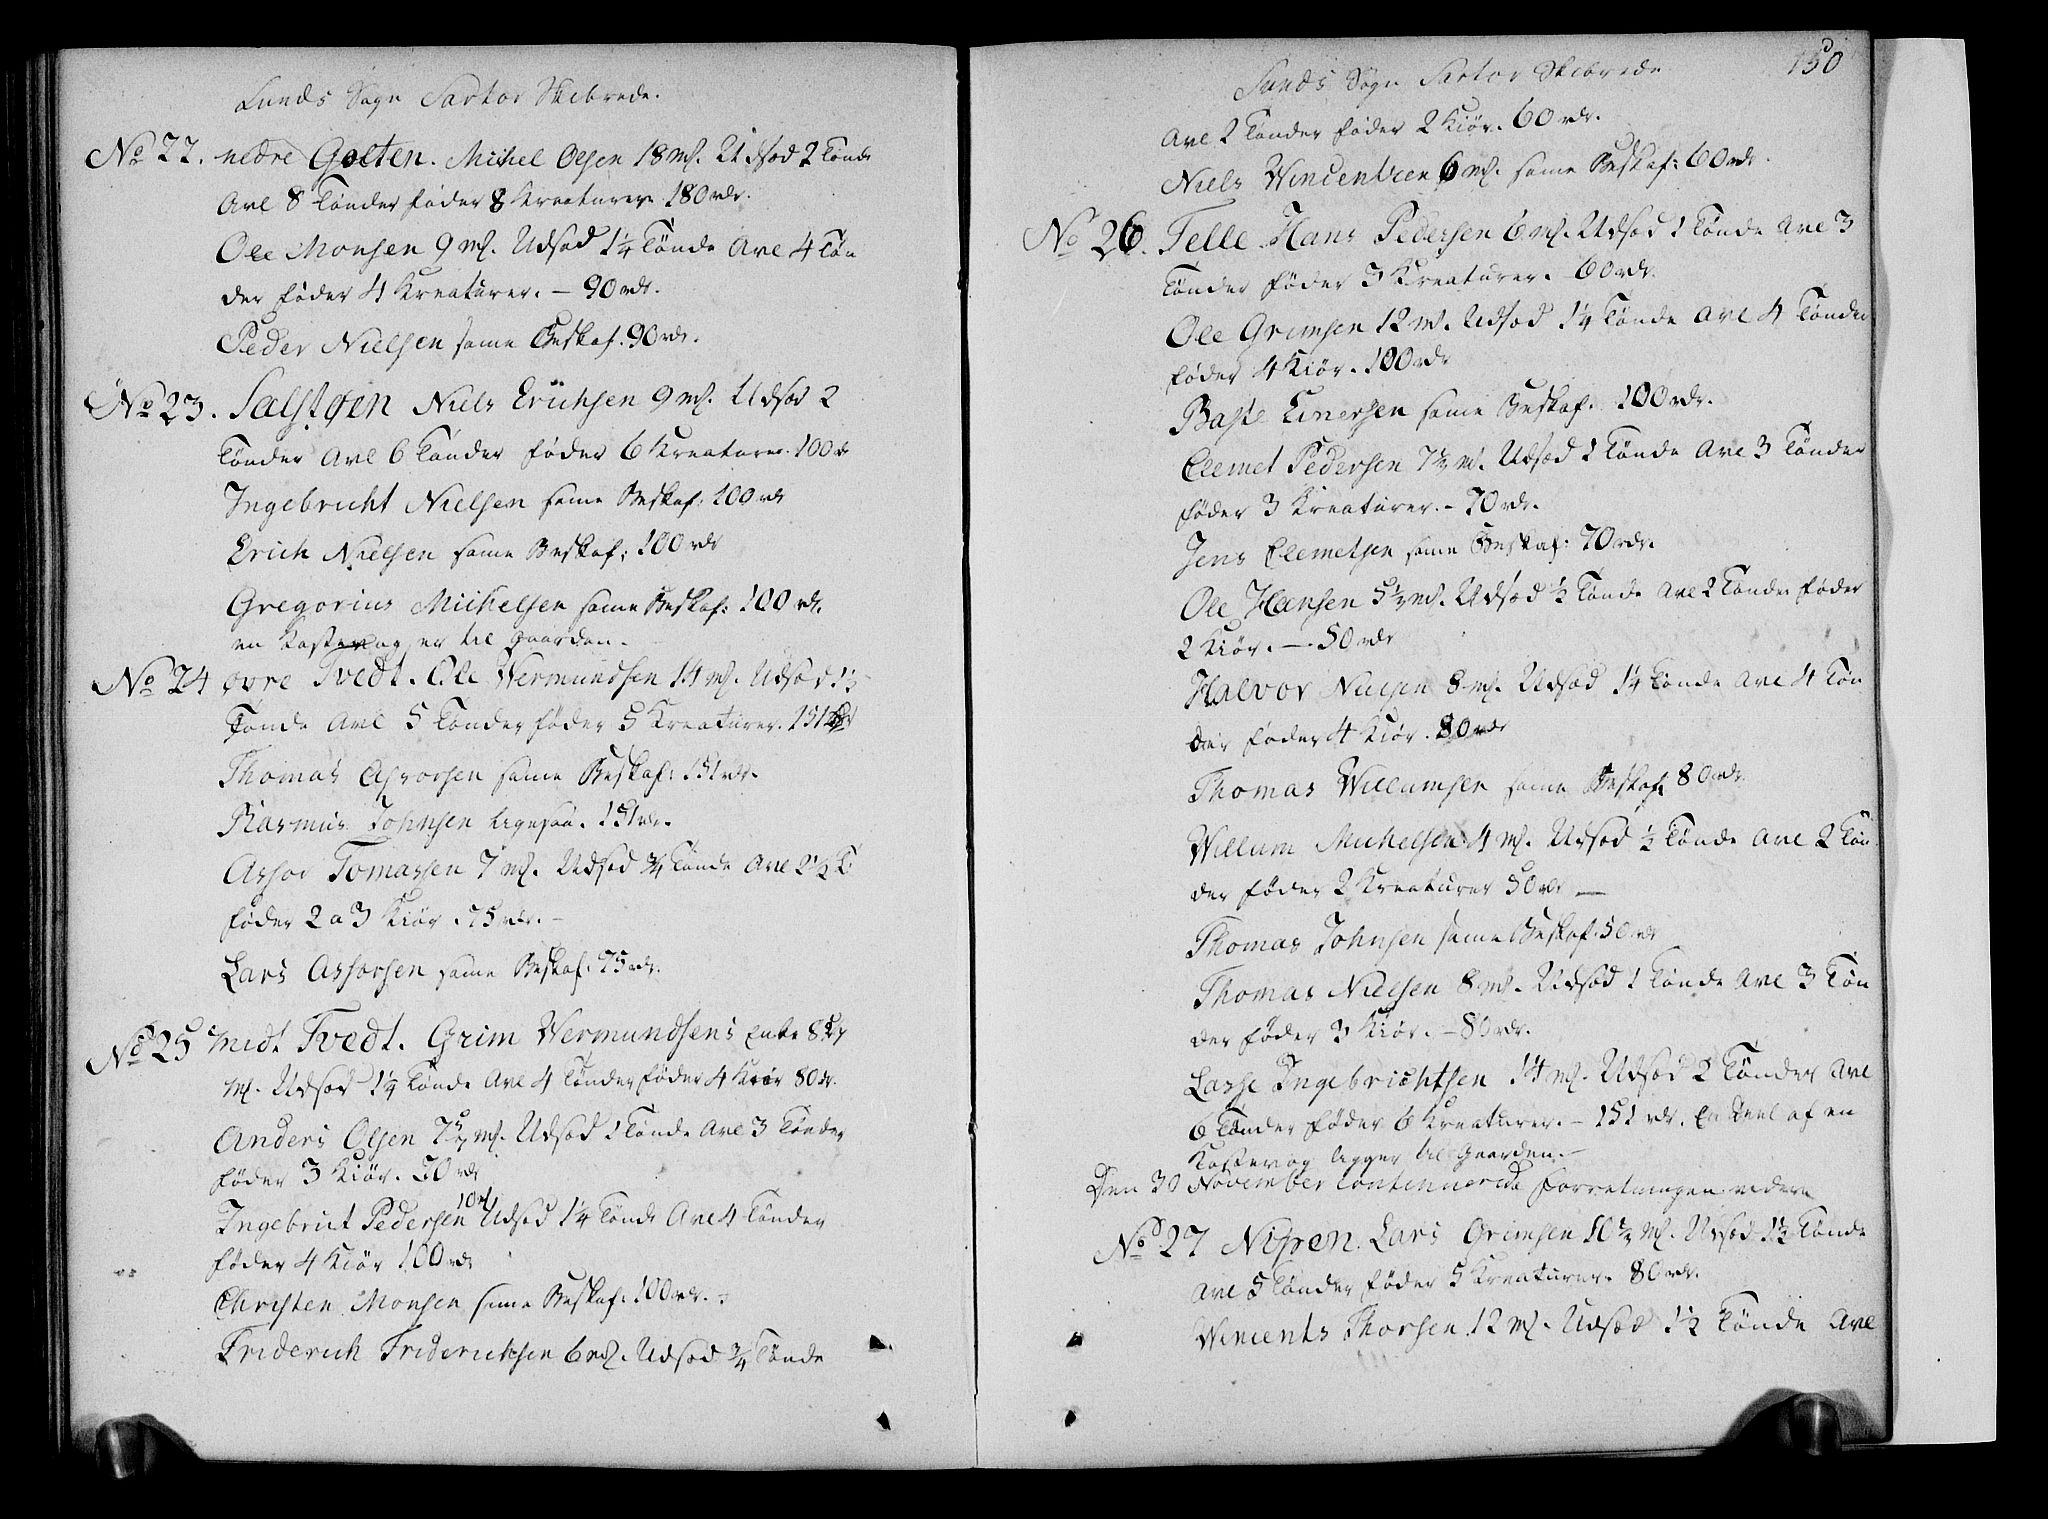 Sunds Sogn Sartor Skibrede.
No 22. nedre Golten. Michel Olsen 18 mk. Udsæd 2 Tønde
Avl 8 Tønder føder 8 Kreaturer 180 rdr.
Ole Monsen 9 mk. Udsæd 1 1/4 Tønde Avl 4 Tøn
der føder 4 Kreaturer. – 90 rdr.
Peder Nielsen same Beskaf. 90 rdr.
No 23. Salstøen Niels Erichsen 9 mk. Udsæd 2
Tønder Avl 6 Tønder føder 6 Kreaturer. 100 r
Ingebricht Nielsen same Beskaf: 100 rdr
Erich Nielsen same Beskaf: 100 rdr
Gregorius Michelsen same Beskaf: 100 rdr.
en Kastevog er til Gaarden.
No 24 øvre Tvedt. Ole Wermundsen 14 mk. Udsæd 1 1/2
Tønde Avl 5 Tønder føder 5 Kreaturer. 151
Thomas Assorsen same Beskaf: 151 rdr.
Rasmus Johnsen ligesaa. 151 rdr.
Assor Tomassen 7 mk. Udsæd 3/4 Tønde Avl 2 1/2 T.
føder 2 a 3 Kiør. 75 rdr. –
Lars Assorsen same Beskaf: 75 rdr.
No 25 midt Tvedt. Grim Wermundsens Enke 8
mk. Udsæd 1 1/4 Tønde Avl 4 Tønder føder 4 Kiør 80 r.
Anders Olsen 7 1/2 mk. Udsæd 1 Tønde Avl 3 Tønder
føder 3 Kiør. 70 rdr
Ingebrict Pedersen 10 mk Udsæd 1 1/4 Tønde Avl 4 Tønder
føder 4 Kiør 100 rdr
Christen Monsen same Beskaf: 100 rdr. –
Friderich Friderichsen 6 mk. Udsæd 3/4 Tønde
150
Sunds Sogn Sartor Skibrede
Avl 2 Tønder føder 2 Kiør. 60 rdr.
Niels Wincentsen 6 mk. same Beskaf: 60 rdr.
No 26. Telle. Hans Pedersen 6 mk. Udsæd 1 Tønde Avl 3
Tønder føder 3 Kreaturer. 60 rdr.
Ole Grimsen 12 mk. Udsæd 1 1/4 Tønde Avl 4 Tønder
føder 4 Kiør. 100 rdr
Baste Einersen same Beskaf. 100 rdr.
Clemet Pedersen 7 1/2 mk. Udsæd 1 Tønde Avl 3 Tønder
føder 3 Kreaturer. – 70 rdr.
Jens Clemetsen same Beskaf: 70 rdr.
Ole Hansen 5 1/2 mk. Udsæd 1/2 Tønde Avl 2 Tønder føder
2 Kiør. – 50 rdr
Halvor Nielsen 8 mk. Udsæd 1 1/4 Tønde Avl 4 Tøn
der føder 4 Kiør. 80 rdr
Thomas Willumsen same Beskaf. 80 rdr.
Willum Michelsen 4 mk. Udsæd 1/2 Tønde Avl 2 Tøn
der føder 2 Kreaturer 50 rdr –
Thomas Johnsen same Beskaf. 50 rdr
Thomas Nielsen 8 mk. Udsæd 1 Tønde Avl 3 Tøn
der føder 3 Kiør. – 80 rdr.
Lasse Ingebrichtsen 14 mk. Udsæd 2 Tønder Avl
6 Tønder føder 6 Kreaturer. – 151 rdr. En Deel af en
Kastevog ligger til Gaarden. –
Den 30 November continuerede Forretningen videre
No 27 Lars Grimsen 10 1/2 mk. Udsæd 1 1/2 Tønde
Avl 5 Tønder føder 5 Kreaturer. 80 rdr.
Wincents Thorsen 12 mk. Udsæd 1 1/2 Tønde Avl